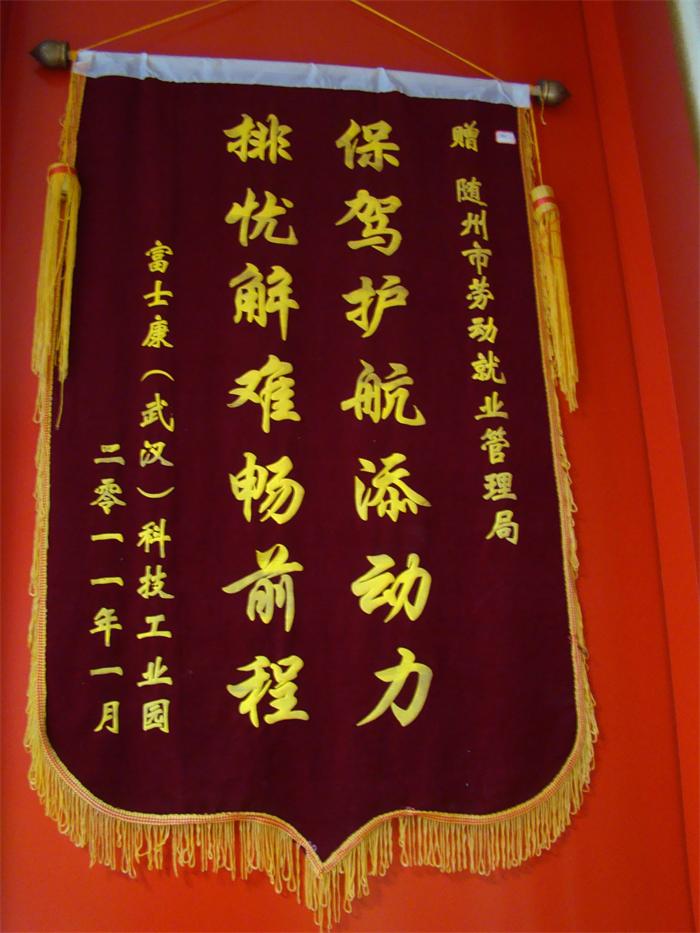 赠 随州市劳动就业管理局
保驾护航添动力
排忧解难畅前程
富士康（武汉）科技工业园
二零一一年一月